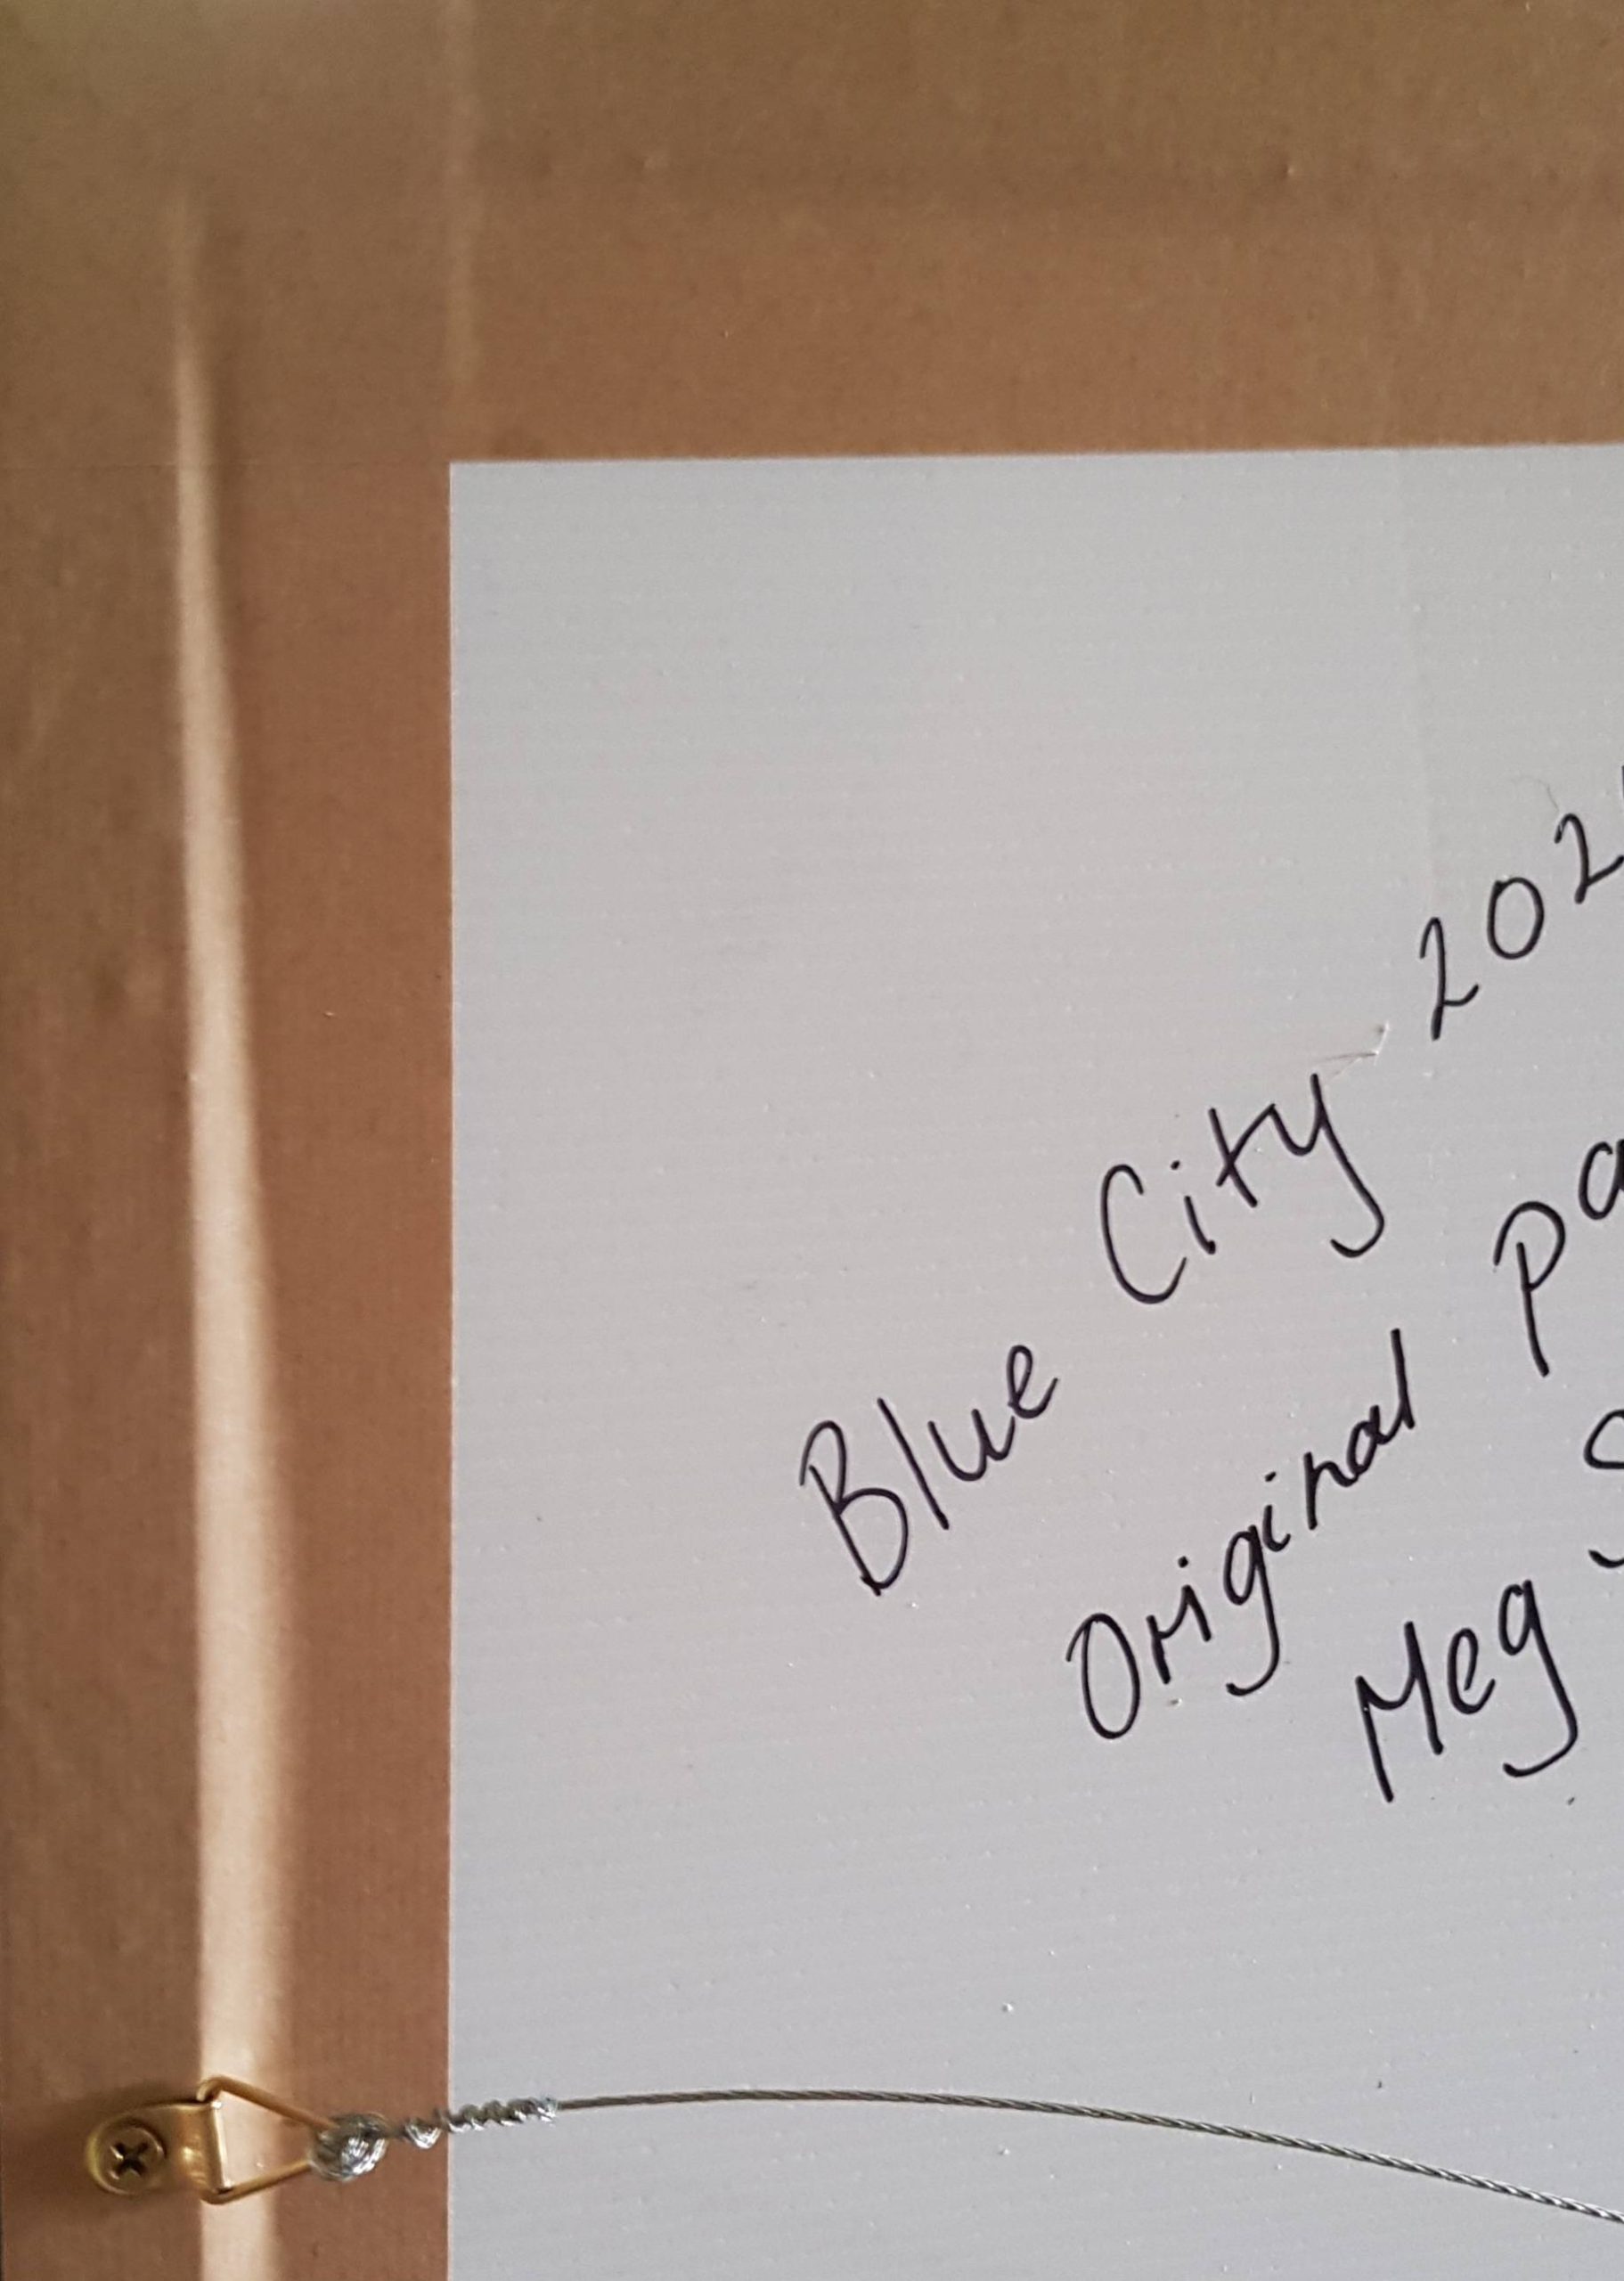 Blue City 202
Original Pa
Meg S